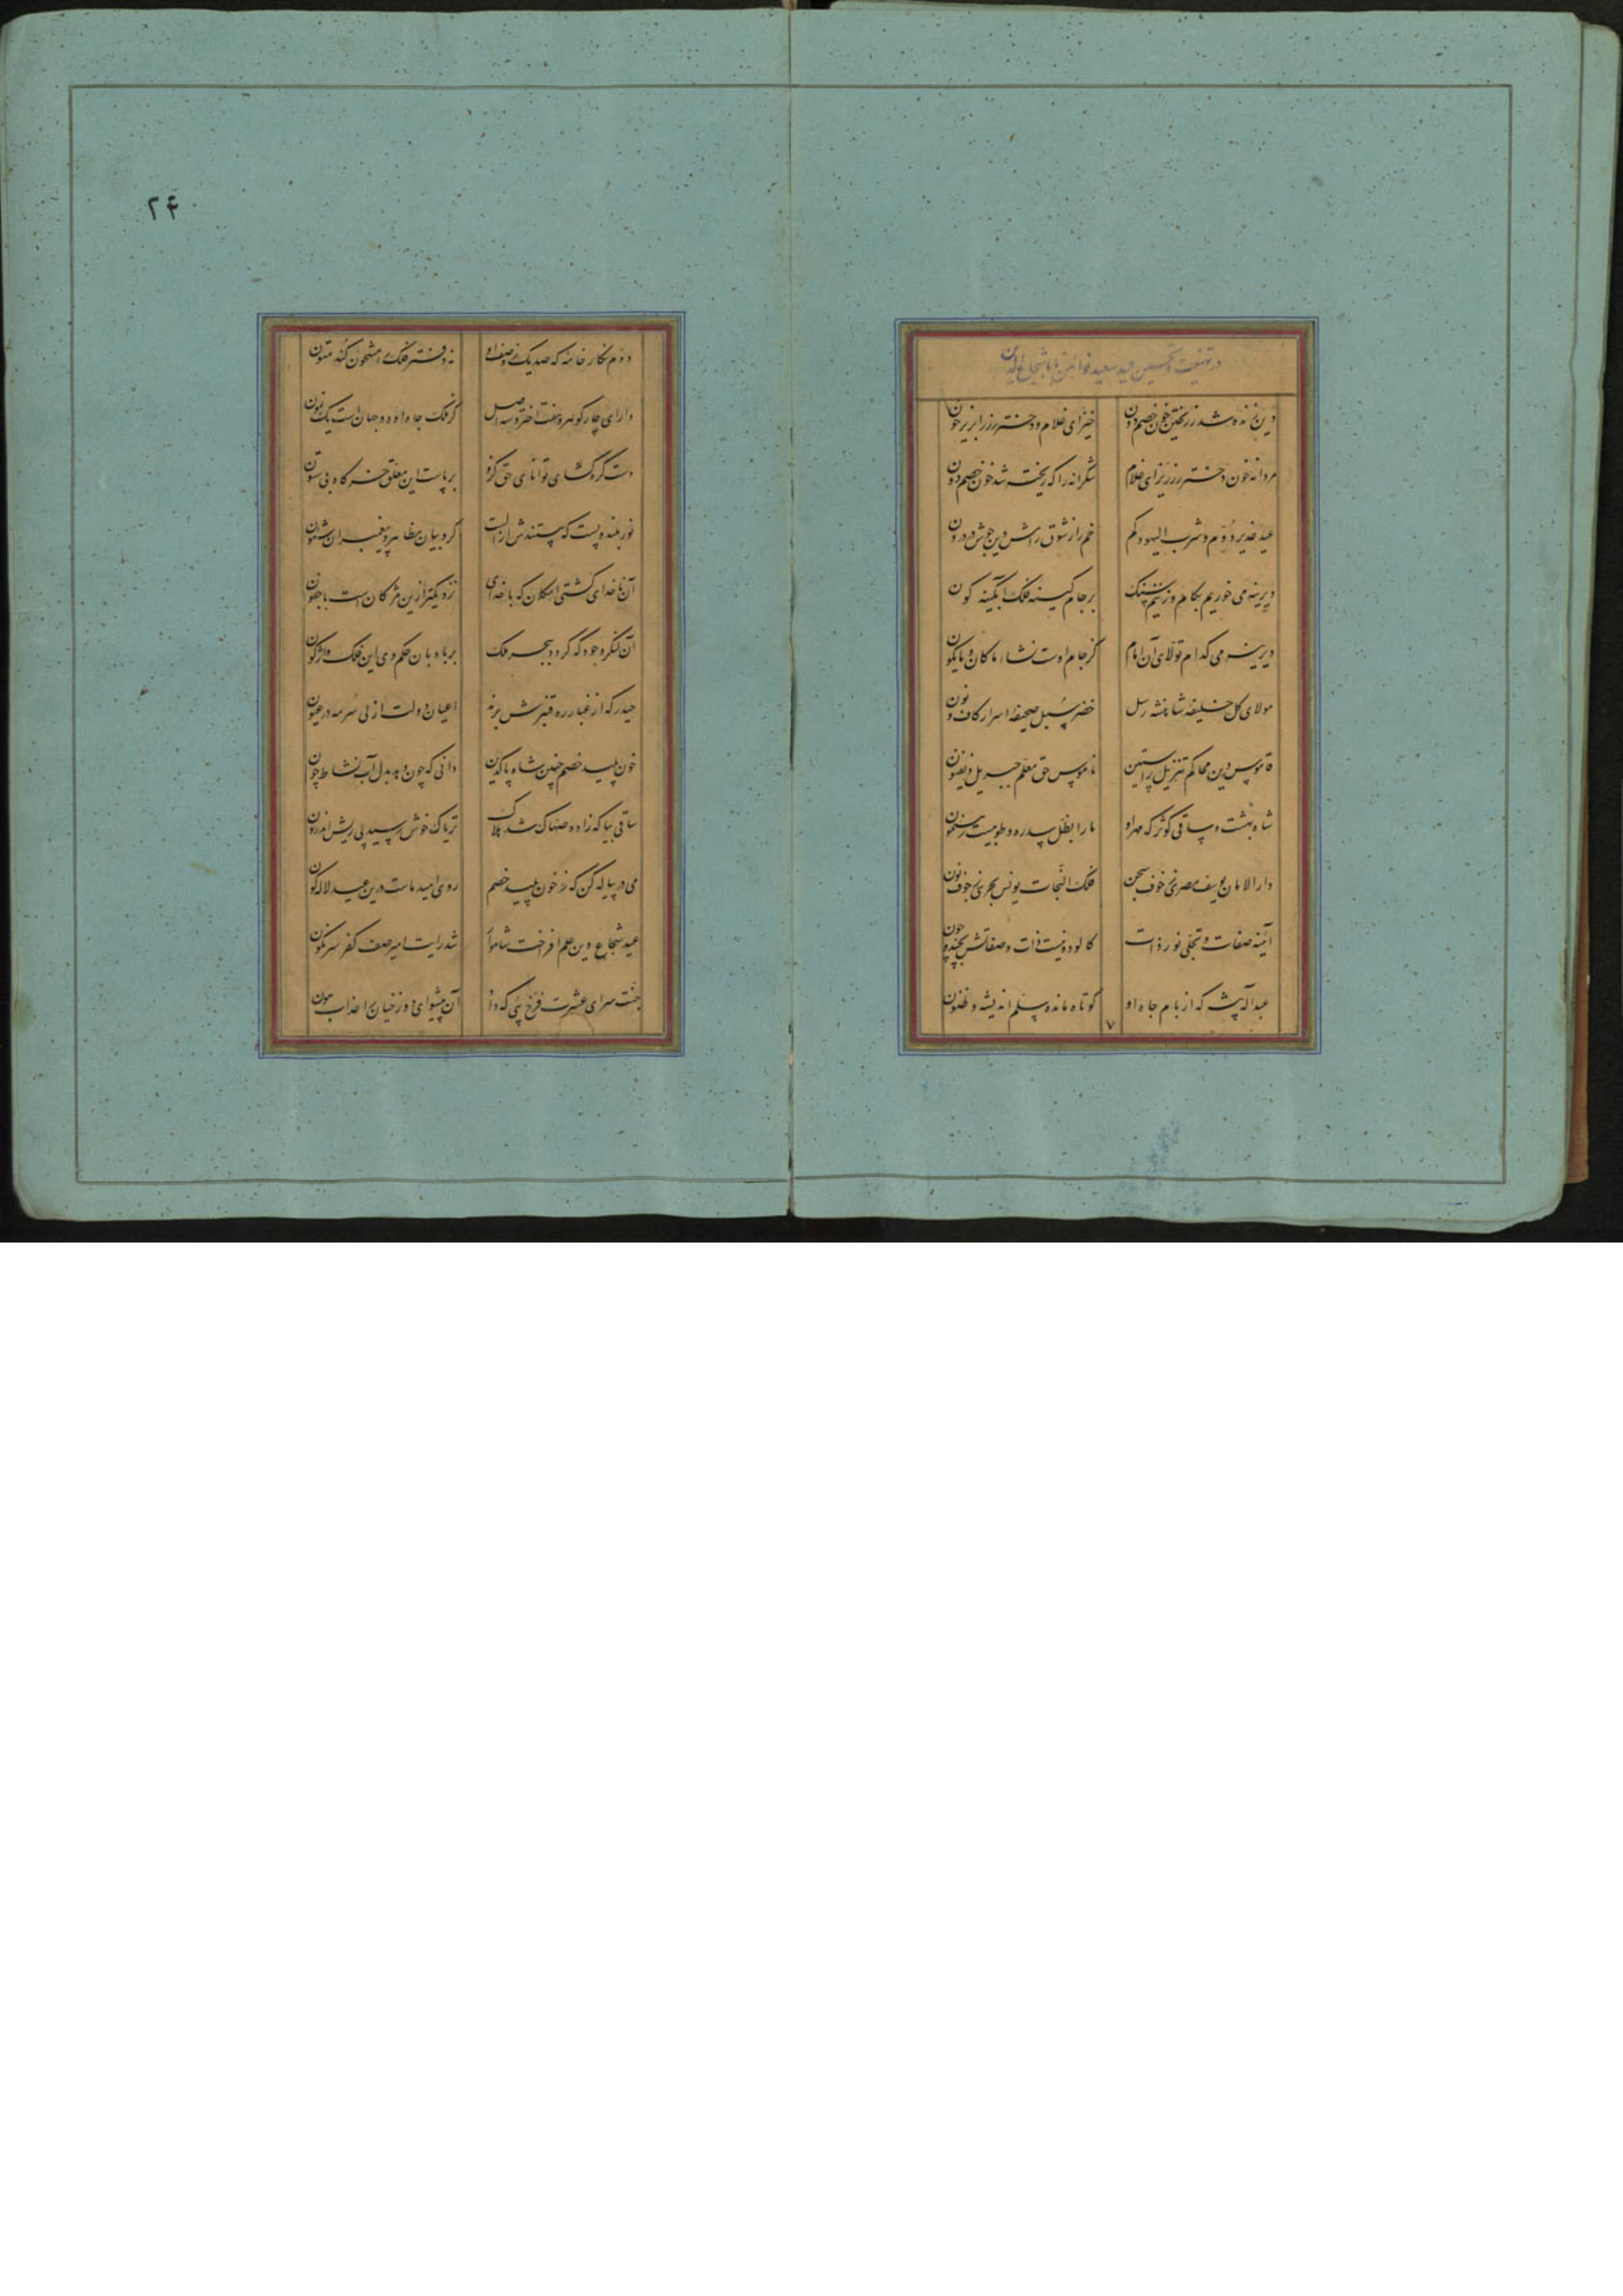 در تهنیت و تحسین عید سعید نوآیین بابا شجاع الدین
دین زنده شد ز ریختن خون خصم دون خیز ای غلام و دختر رز را بریز خون
مردانه خون دختر رز ریز ای غلام شکرانه را که ریخته شد خون خصم دون
عید غدیر دوم و شرب الیهود کم خم را ز شوق رامش دین جوش در درون
دیرینه می خوریم بکام و زنیم سنگ بر جام کینه فلک آبگینه گون
دیرینه می کدام تولای آن امام کز جام اوست نشاء ما کان و ما یکون
مولای کل خلیفه شاهنشه رسل خضر سبل صحیفه اسرار کاف و نون
قاموس دین محاکم تنزیل راستین ناموس حق معلم جبریل ذیفنون
شاه بهشت و ساقی کوثر که مهر او ما را بظل سدره و طوبیست رهنمون
دارالامان یوسف مصری ز خوف سجن فلک النجات یونس بحری ز خوف نون
آئینه صفات و تجلی نور ذات کالوده نیست ذات و صفاتش بچند و چون
عبد آله پیشه که از بام جاه او کوتاه مانده سلم اندیشه و فنون
۲۴
دوم نگار خامه که صد یک ز وصف او نه دفتر فلک را مشحون کند متون
دارای چار گوهر و هفت اختر و سه اصل کز فلک جاه او دو جهان است یک نمون
دست گره گشای توانای حق کزو بر پاست این معلق خرگاه بی ستون
نور بلند و پست که پستندش از الست کروبیان مظاهر و پیغمبران شئون
آن ناخدای کشتی امکان که با خدای نزدیکتر از این مژگان است با جفون
آن لنگر وجود که گردد ببحر فلک بر بادبان حکم وی این فلک واژگون
حیدر که از غبار ره قنبرش برند اعیان دولت ازلی سرمه در عیون
خون پلید خصم چنین شاه پاکدین دانی که چون دهد بدل آب نشاط چون
ساقی بیا که زاده ضحاک شد هلاک تریاک خوش رسید پی ریش اندرون
می در پیاله کن که ز خون پلید خصم روی امید ماست درین عید لاله گون
عید شجاع دین علم افراخت شاموا شد رایت امیر صف کفر سرنگون
جنت سرای عشرت فرخ پئی که داد آن پیشوای دوزخیان را عذاب هون